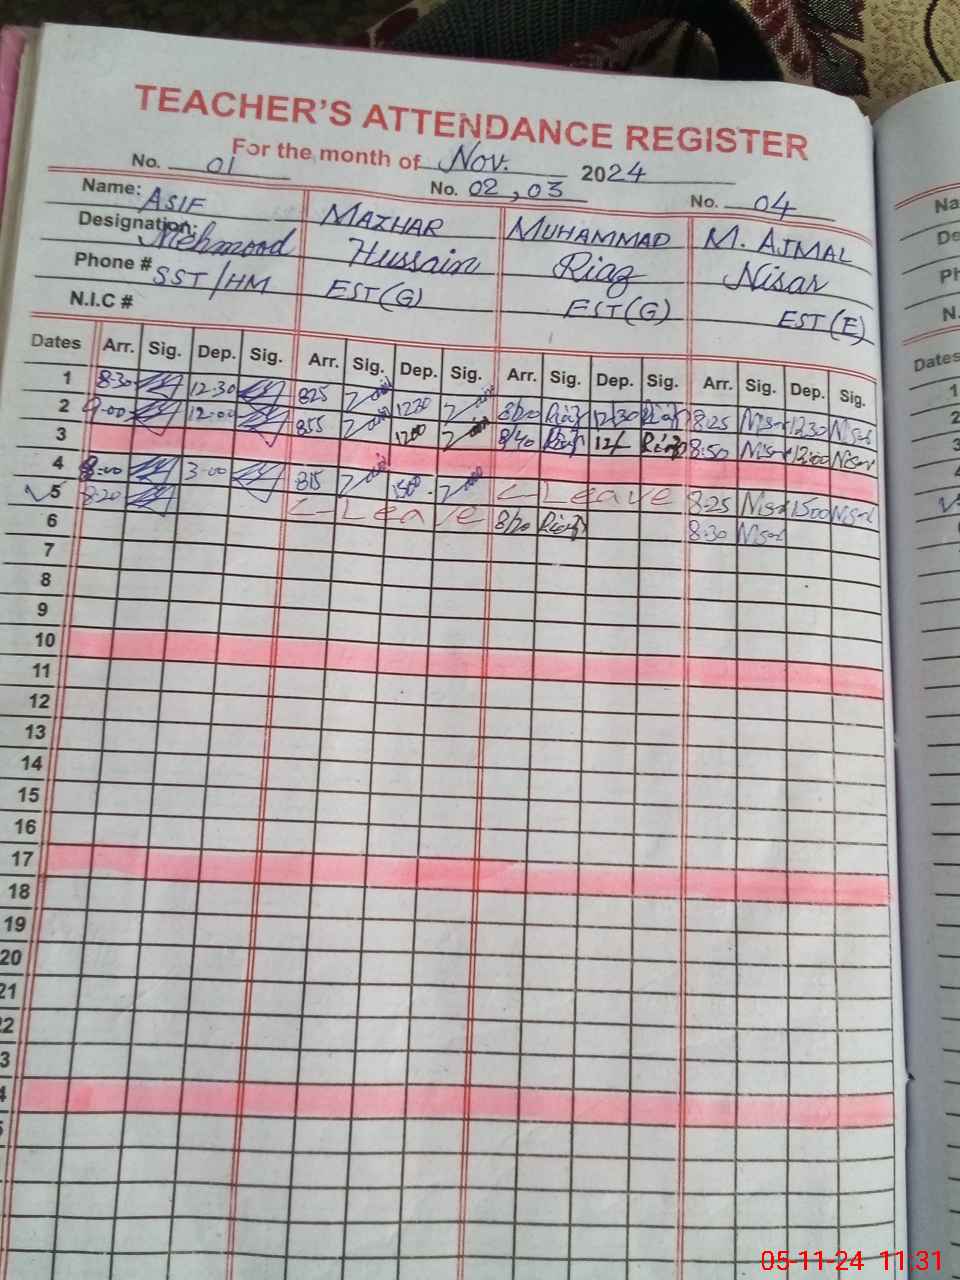 TEACHER'S ATTENDANCE REGISTER
For the month of Nov. 2024
No. 01 No. 02, 03 No. 04
Name: ASIF MAZHAR MUHAMMAD M. AJMAL
Designation: Mehmood Hussain Riaz Nisar
Phone # SST/HM EST(G) EST(G) EST(E)
N.I.C #
Dates Arr. Sig. Dep. Sig. Arr. Sig. Dep. Sig. Arr. Sig. Dep. Sig. Arr. Sig. Dep. Sig.
1 8:30 12:30 825 1230 8/20 Riaz 12/30 Riaz 8:25 Nisar 1230 Nisar
2 9:00 12:00 855 1200 8/40 Riaz 12/ Riaz 8:50 Nisar 12:00 Nisar
3
4 8:00 3:00 815 1500 C-Leave 8:25 Nisar 1500 Nisar
5 8:20 C-Leave 8/20 Riaz 8:30 Nisar
6
7
8
9
10
11
12
13
14
15
16
17
18
19
20
21
2
3
4
5
Na
De
Ph
N.
Dates
1
2
3
4
05-11-24 11:31